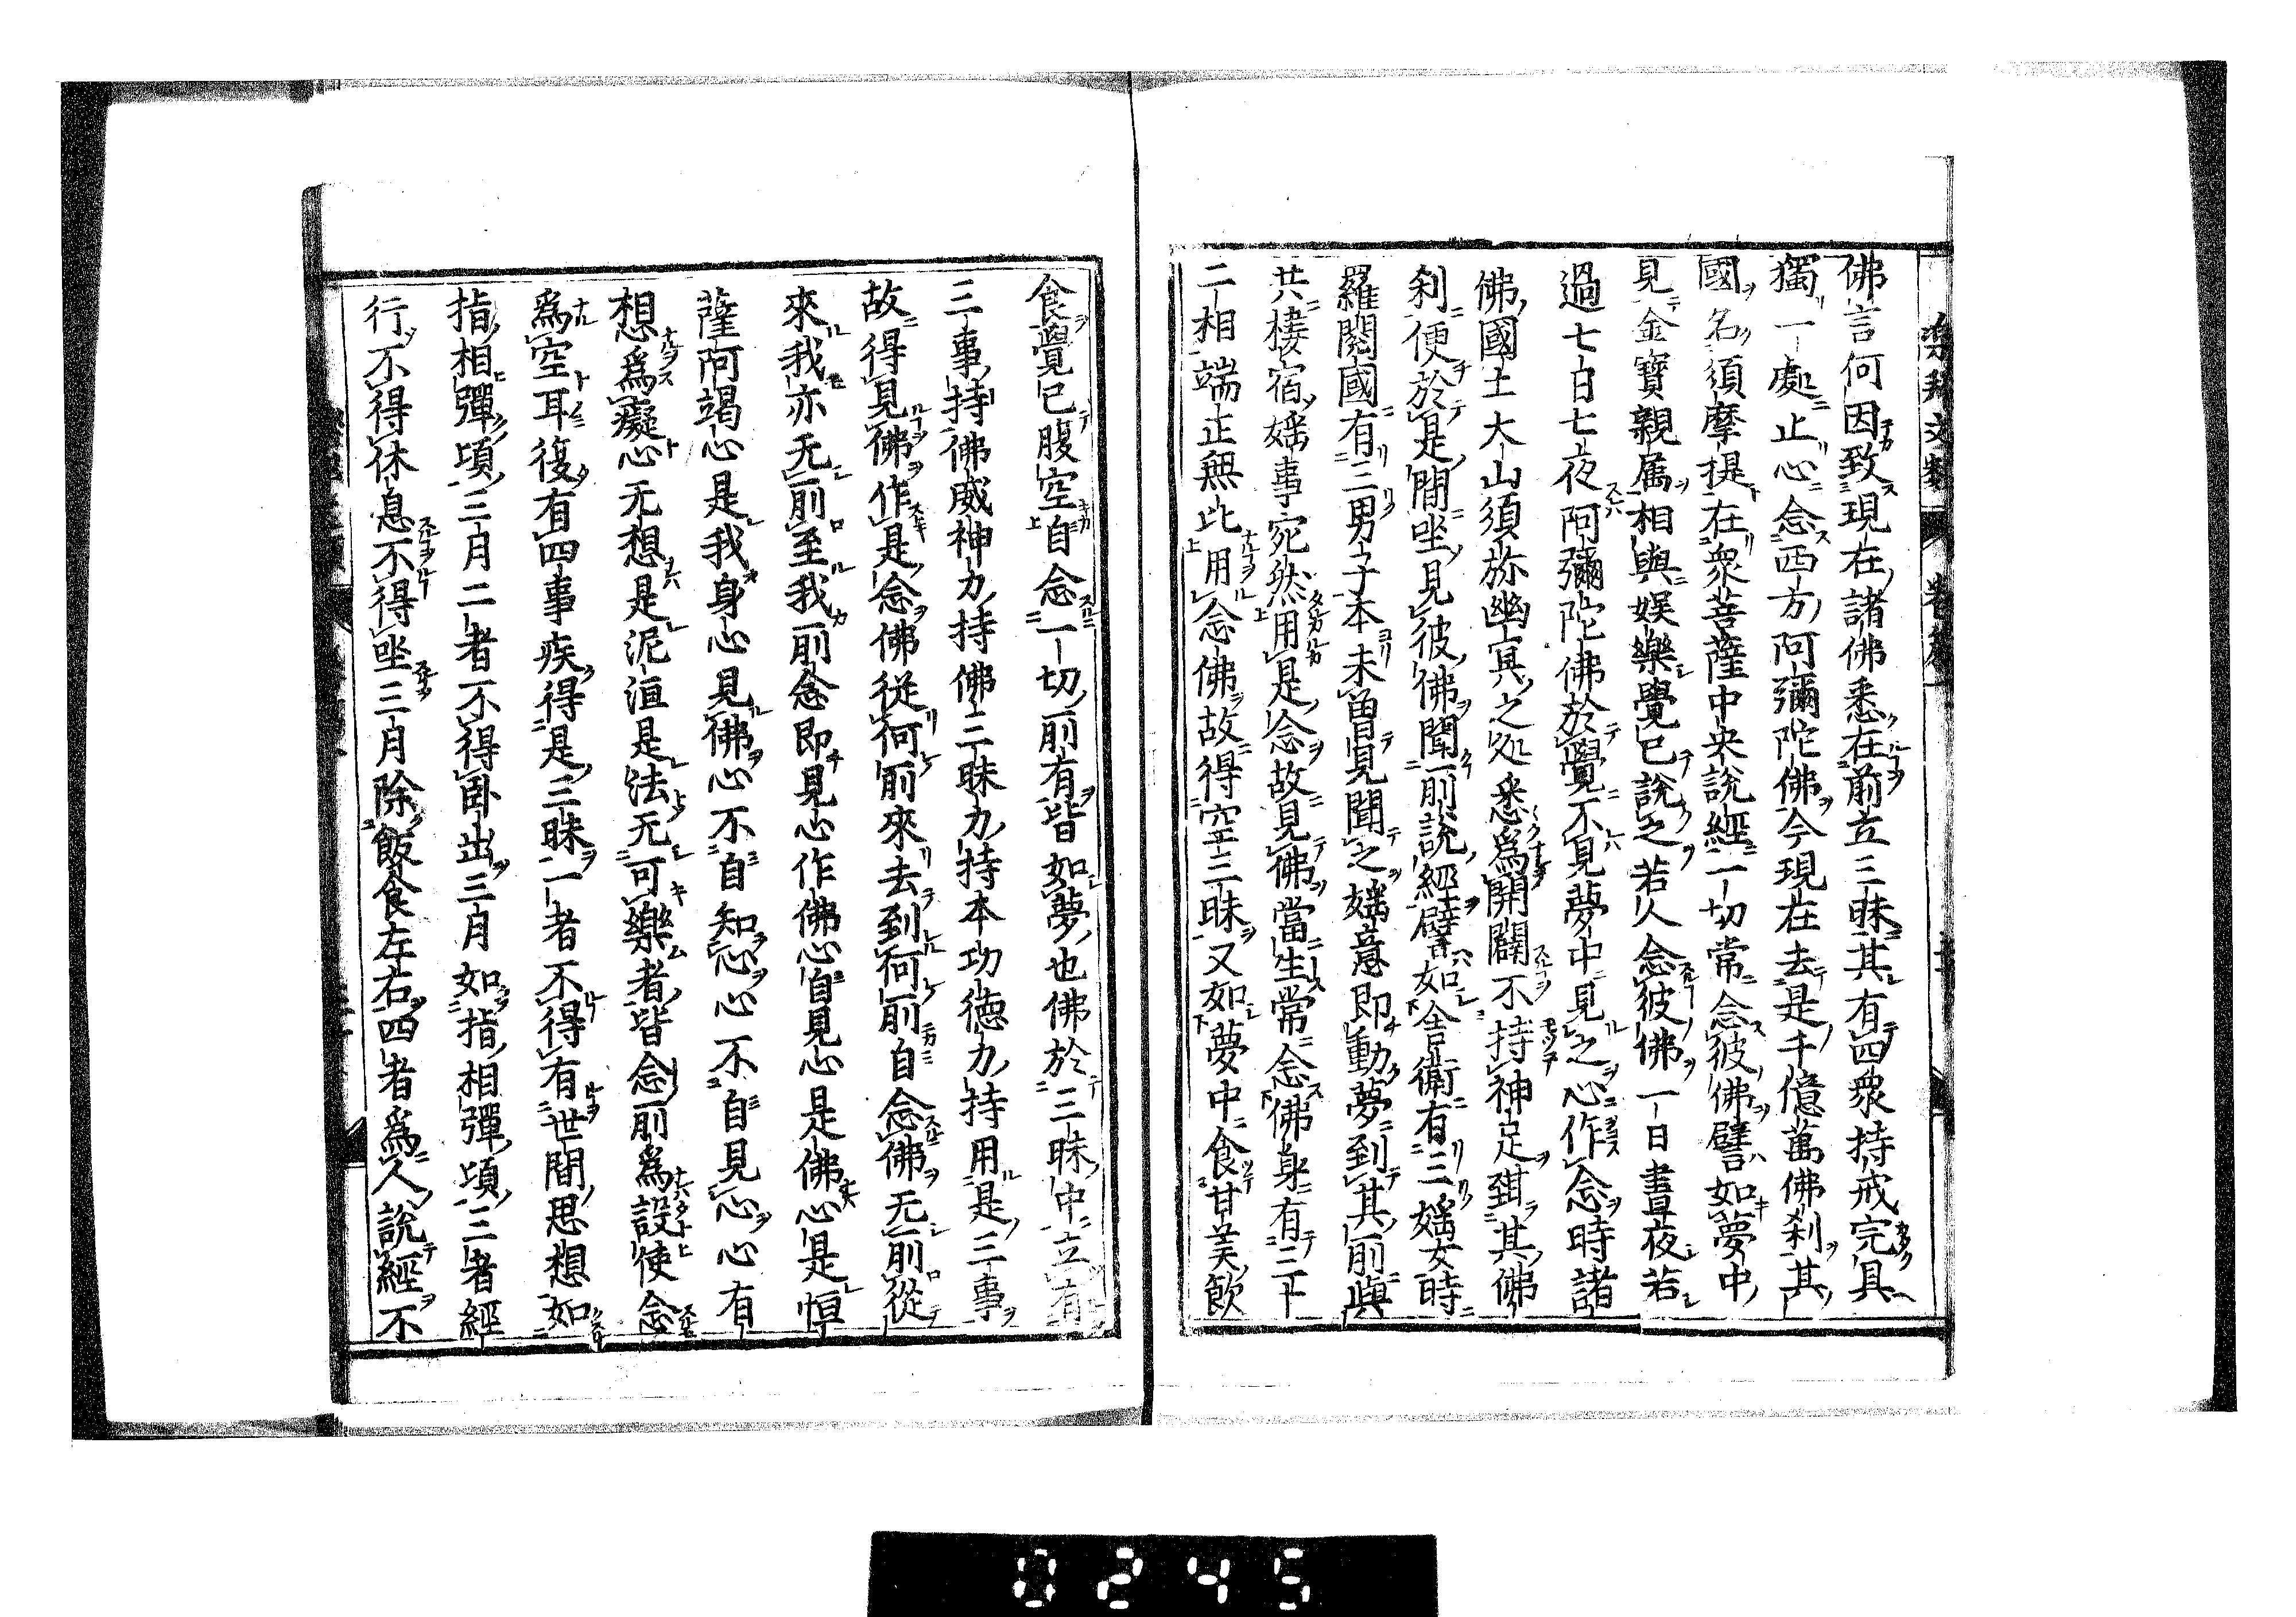 佛言何因致現在諸佛悉在前立三昧其有四衆持戒完具
獨一處止心念西方阿彌陀佛今現在去是千億萬佛刹其
國名須摩提在衆菩薩中央說經一切常念彼佛譬如夢中
見金寶親属相與娯樂覺已說之若人念彼佛一日晝夜若
過七日七夜阿彌陀佛於覺不見夢中見之心作念時諸
佛國土大山須弥幽冥之処悉爲開闢不持神足到其佛
刹便於是間坐見彼佛聞前說經譬如舍衛有三婬女時
羅閲國有三男子本未曽見聞之婬意即動夢到其前與
共棲宿婬事宛然用是念故見佛當生常念佛身有三十
二相端正無比用念佛故得空三昧又如夢中食甘美飲
食覺已腹空自念一切前有皆如夢也佛於三昧中立有
三事持佛威神力持佛三昧力持本功德力持用是三事
故得見佛作是念佛從何前來去到何前自念佛无前從
來我亦无前至我前念即見心作佛心自見心是佛心是怛
薩阿竭心是我身心見佛心不自知心心不自見心心有
想爲癡心无想是泥洹是法无可樂者皆念前爲設使念
爲空耳復有四事疾得是三昧一者不得有世間思想如
指相彈頃三月二者不得臥出三月如指相彈頃三者經
行不得休息不得坐三月除飯食左右四者爲人說經不
0245